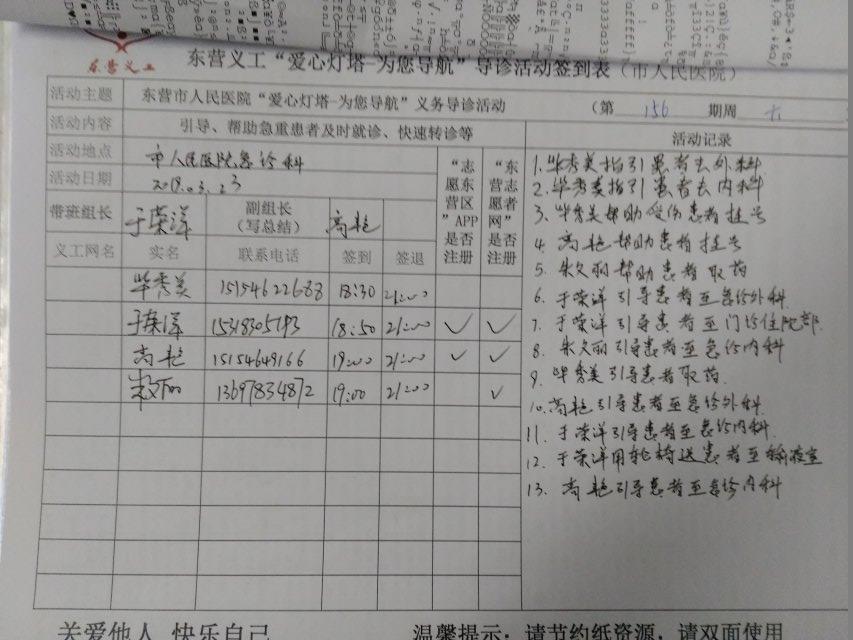 东营义工
东营义工“爱心灯塔-为您导航”导诊活动签到表(市人民医院)
活动主题 东营市人民医院“爱心灯塔-为您导航”义务导诊活动 (第 156 期周 六
活动内容 引导、帮助急重患者及时就诊、快速转诊等
活动地点 市人民医院急诊科
活动日期 2018.03.23
带班组长 于荣洋 副组长(写总结) 高艳
“志愿东营区”APP是否注册 “东营志愿者网”是否注册
义工网名 实名 联系电话 签到 签退
毕秀美 15154622688 18:30 21:00
于荣洋 15318305793 18:50 21:00 ✓ ✓
高艳 15154649166 19:00 21:00 ✓ ✓
朱文丽 13697834872 19:00 21:00 ✓
活动记录
1. 毕秀美指引患者去外科
2. 毕秀美指引患者去内科
3. 毕秀美帮助受伤患者挂号
4. 高艳帮助患者挂号
5. 朱文丽帮助患者取药
6. 于荣洋引导患者至急诊外科
7. 于荣洋引导患者至门诊住院部
8. 朱文丽引导患者至急诊内科
9. 毕秀美引导患者取药
10. 高艳引导患者至急诊外科
11. 于荣洋引导患者至急诊内科
12. 于荣洋用轮椅送患者至输液室
13. 高艳引导患者至急诊内科
关爱他人 快乐自己 温馨提示:请节约纸资源,请双面使用